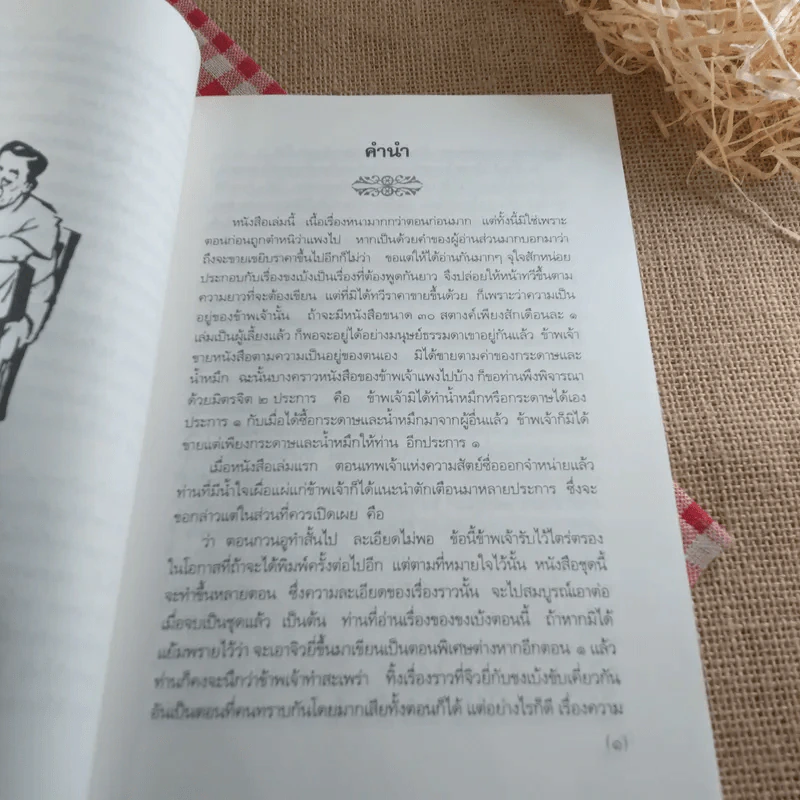 คำนำ
หนังสือเล่มนี้ เนื้อเรื่องหนามากกว่าตอนก่อนมาก แต่ทั้งนี้มิใช่เพราะ
ตอนก่อนถูกตำหนิว่าแพงไป หากเป็นด้วยคำของผู้อ่านส่วนมากบอกมาว่า
ถึงจะขายเขยิบราคาขึ้นไปอีกก็ไม่ว่า ขอแต่ให้ได้อ่านกันมากๆ จุใจสักหน่อย
ประกอบกับเรื่องขงเบ้งเป็นเรื่องที่ต้องพูดกันยาว จึงปล่อยให้หน้าทวีขึ้นตาม
ความยาวที่จะต้องเขียน แต่ที่มิได้ทวีราคาขายขึ้นด้วย ก็เพราะว่าความเป็น
อยู่ของข้าพเจ้านั้น ถ้าจะมีหนังสือขนาด ๓๐ สตางค์เพียงสักเดือนละ ๑
เล่มเป็นผู้เลี้ยงแล้ว ก็พอจะอยู่ได้อย่างมนุษย์ธรรมดาเขาอยู่กันแล้ว ข้าพเจ้า
ขายหนังสือตามความเป็นอยู่ของตนเอง มิได้ขายตามค่าของกระดาษและ
น้ำหมึก ฉะนั้นบางคราวหนังสือของข้าพเจ้าแพงไปบ้าง ก็ขอท่านพึงพิจารณา
ด้วยมิตรจิต ๒ ประการ คือ ข้าพเจ้ามิได้ทำน้ำหมึกหรือกระดาษได้เอง
ประการ ๑ กับเมื่อได้ซื้อกระดาษและน้ำหมึกมาจากผู้อื่นแล้ว ข้าพเจ้าก็มิได้
ขายแต่เพียงกระดาษและน้ำหมึกให้ท่าน อีกประการ ๑
เมื่อหนังสือเล่มแรก ตอนเทพเจ้าแห่งความสัตย์ซื่อออกจำหน่ายแล้ว
ท่านที่มีน้ำใจเผื่อแผ่แก่ข้าพเจ้าก็ได้แนะนำตักเตือนมาหลายประการ ซึ่งจะ
ขอกล่าวแต่ในส่วนที่ควรเปิดเผย คือ
ว่า ตอนกวนอูทำสั้นไป ละเอียดไม่พอ ข้อนี้ข้าพเจ้ารับไว้ไตร่ตรอง
ในโอกาสที่ถ้าจะได้พิมพ์ครั้งต่อไปอีก แต่ตามที่หมายใจไว้นั้น หนังสือชุดนี้
จะทำขึ้นหลายตอน ซึ่งความละเอียดของเรื่องราวนั้น จะไปสมบูรณ์เอาต่อ
เมื่อจบเป็นชุดแล้ว เป็นต้น ท่านที่อ่านเรื่องของขงเบ้งตอนนี้ ถ้าหากมิได้
แย้มพรายไว้ว่า จะเอาจิวยี่ขึ้นมาเขียนเป็นตอนพิเศษต่างหากอีกตอน ๑ แล้ว
ท่านก็คงจะนึกว่าข้าพเจ้าทำสะเพร่า ทิ้งเรื่องราวที่จิวยี่กับขงเบ้งขับเคี่ยวกัน
อันเป็นตอนที่คนทราบกันโดยมากเสียทั้งตอนก็ได้ แต่อย่างไรก็ดี เรื่องความ
(๑)